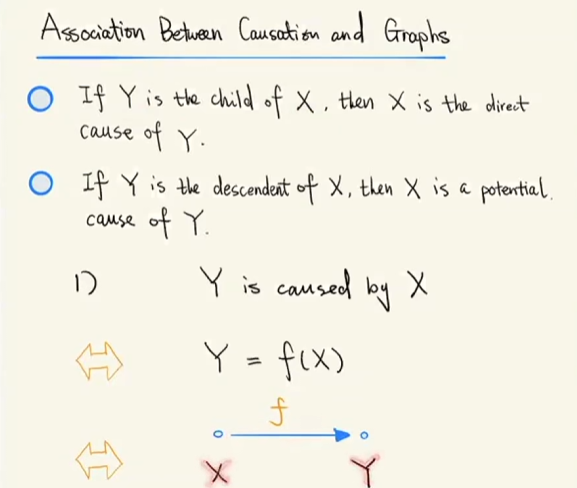 Association Between Causation and Graphs
If Y is the child of X, then X is the direct
cause of Y.
If Y is the descendent of X, then X is a potential
cause of Y.
1) Y is caused by X
⇔ Y = f(X)
f
⇔ X Y